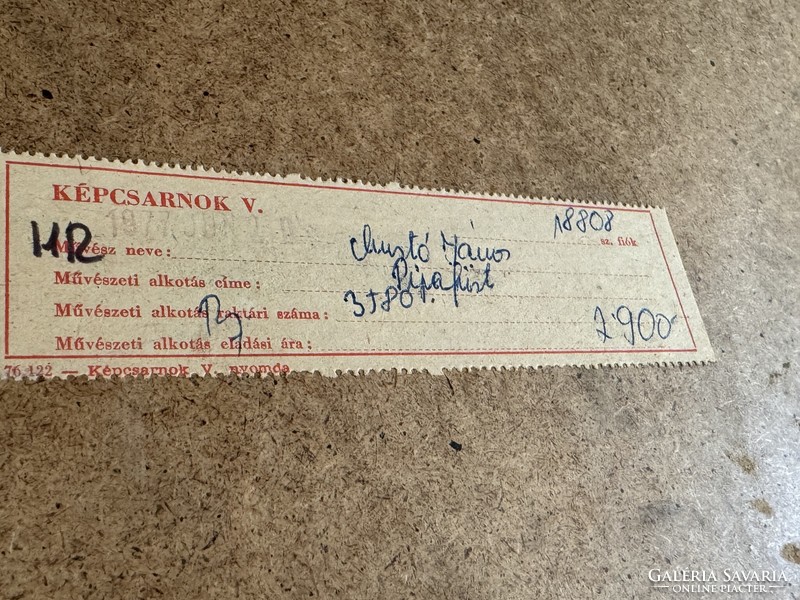 KÉPCSARNOK V.
18808
sz. fiók
HR
Művész neve: Mustó János
Művészeti alkotás címe: Pipafüst
Művészeti alkotás raktári száma:
Művészeti alkotás eladási ára: 2900
76.122 — Képcsarnok V. nyomda
GALÉRIA SAVARIA
ONLINE PIACTÉR